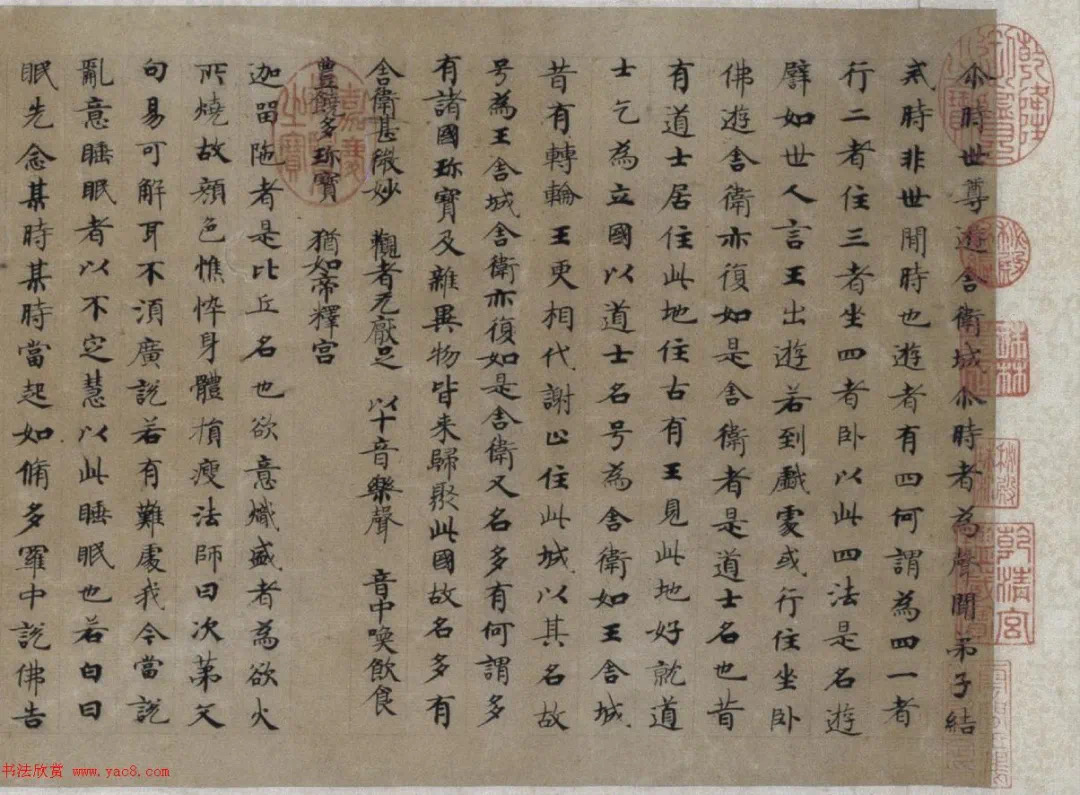 尒時世尊遊舍衛城尒時者為聲聞弟子結
戒時非世間時也遊者有四何謂為四一者
行二者住三者坐四者卧以此四法是名遊
譬如世人言王出遊若到戲處或行住坐卧
佛遊舍衛亦復如是舍衛者是道士名也昔
有道士居住此地住古有王見此地好就道
士乞為立國以道士名号為舍衛如王舍城
昔有轉輪王更相代謝止住此城以其名故
号為王舍城舍衛亦復如是舍衛又名多有何謂多
有諸國珎寶及雜異物皆来歸聚此國故名多有
舍衛甚微妙 觀者无厭足 以十音樂聲 音中喚飲食
豊饒多珎寶 猶如帝釋宫
迦留陁者是比丘名也欲意熾盛者為欲火
所燒故顔色憔悴身體損瘦法師曰次第文
句易可解耳不湏廣説若有難處我今當説
亂意睡眠者以不定慧以此睡眠也若白日
眠先念某時某時當起如脩多羅中説佛告
乾隆
嘉慶
之寶
乾清宫
书法欣赏 www.yac8.com